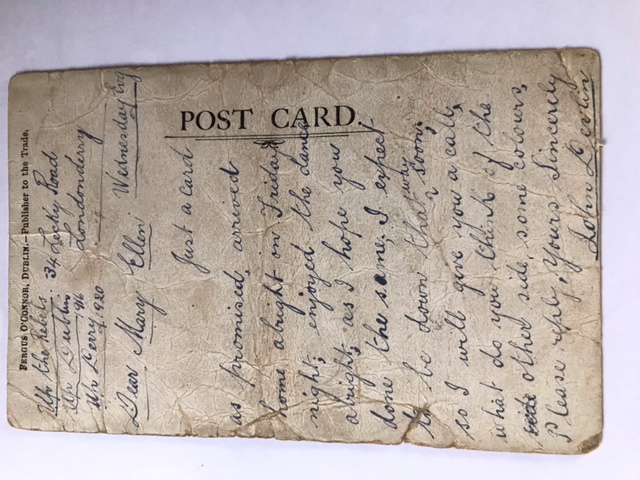 POST CARD.
FERGUS O'CONNOR, DUBLIN.—Publisher to the Trade.
Up the Rebels 34 Lecky Road
Up Dublin '16 Londonderry
Up Derry, 920 Wednesday Evg
Dear Mary Ellen
Just a card
as promised, arrived
home alright on Friday
night, enjoyed the dance
alright, as I hope you
done the same, I expect
to be down that way soon,
so I will give you a call,
what do you think of the
other side, some colours,
Please reply, Yours Sincerely
John Devlin